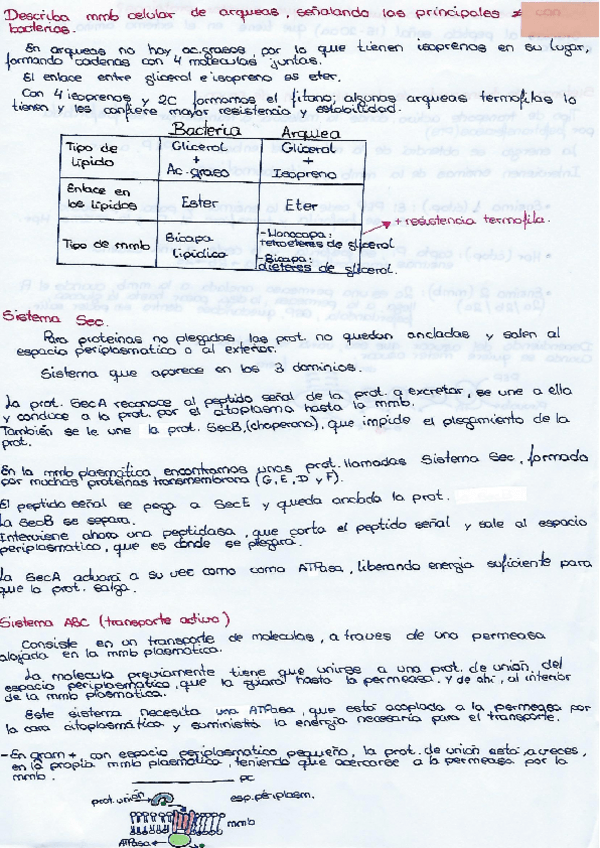 Describa mmb celular de arqueas, señalando las principales ≠ con
bacterias.
En arqueas no hay ac.grasos, por lo que tienen isoprenos en su lugar,
formando cadenas con 4 moleculas juntas.
El enlace entre glicerol e isopreno es eter.
Con 4 isoprenos y 2C formamos el fitano; algunas arqueas termofilas lo
tienen y les confiere mayor resistencia y estabilidad.
Bacteria Arquea
Tipo de lípido Glicerol + Ac. graso Glicerol + Isopreno
Enlace en los lípidos Ester Eter
Tipo de mmb Bicapa lipídica -Monocapa: tetraeteres de glicerol
-Bicapa: dieteres de glicerol.
+ resistencia termofila.
Sistema Sec.
Para proteinas no plegadas, las prot. no quedan ancladas y salen al
espacio periplasmatico o al exterior.
Sistema que aparece en los 3 dominios.
La prot. SecA reconoce al peptido señal de la prot. a excretar, se une a ella
y conduce a la prot. por el citoplasma hasta la mmb.
También se le une la prot. SecB,(chaperona), que impide el plegamiento de la
prot.
En la mmb plasmática encontramos unas prot. llamadas Sistema Sec, formado
por muchas proteinas transmembrana (G, E, D y F).
El peptido señal se pega a SecE y queda anclada la prot.
La SecB se separa.
Interviene ahora una peptidasa, que corta el peptido señal y sale al espacio
periplasmatico, que es donde se plegará.
La SecA actuará a su vez como como ATPasa, liberando energia suficiente para
que la prot. salga.
Sistema ABC (transporte activo)
Consiste en un transporte de moleculas, a traves de una permeasa
alojada en la mmb plasmatica.
La molecula previamente tiene que unirse a una prot. de unión, del
espacio periplasmatico, que la guiará hasta la permeasa. y de ahi, al interior
de la mmb plasmatica.
Este sistema necesita una ATPasa, que está acoplada a la permeasa por
la cara citoplasmática y suministra la energia necesaria para el transporte.
-En gram +, con espacio periplasmatico pequeño, la prot. de unión está, a veces,
en la propia mmb plasmatica, teniendo que acercarse a la permeasa por la
mmb.
PC
prot. unión
esp. periplasm.
mmb
ATPasa